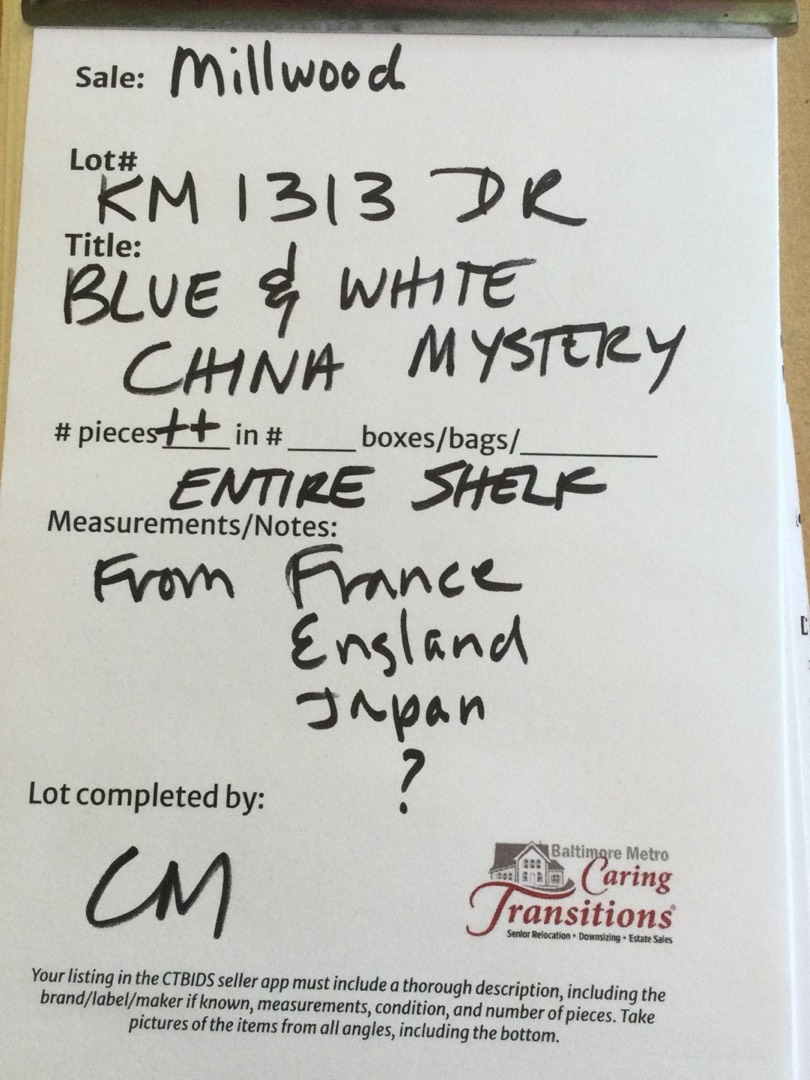 Sale: Millwood
Lot#
KM 1313 DR
Title:
BLUE & WHITE
CHINA MYSTERY
# pieces ++ in # ____ boxes/bags/__________
ENTIRE SHELF
Measurements/Notes:
From France
England
Japan
?
Lot completed by:
CM
Baltimore Metro
Caring
Transitions®
Senior Relocation • Downsizing • Estate Sales
Your listing in the CTBIDS seller app must include a thorough description, including the
brand/label/maker if known, measurements, condition, and number of pieces. Take
pictures of the items from all angles, including the bottom.